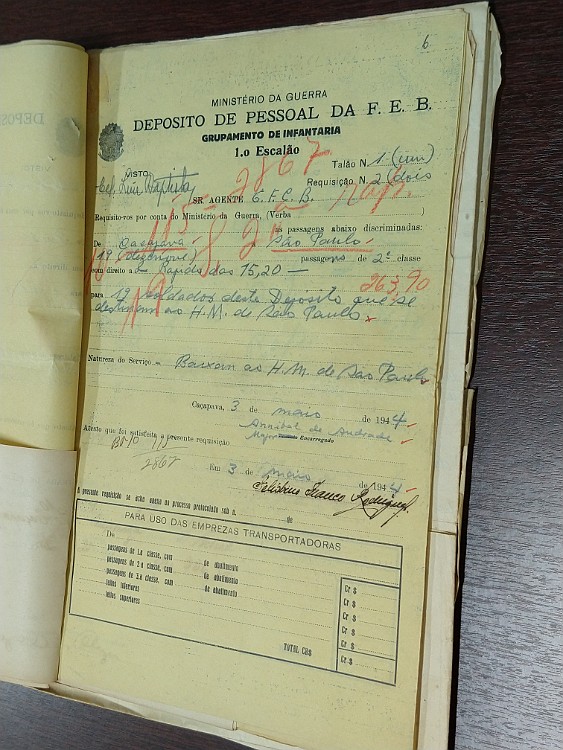 6
MINISTÉRIO DA GUERRA
DEPOSITO DE PESSOAL DA F. E. B.
GRUPAMENTO DE INFANTARIA
1.o Escalão
2867
Talão N. 1 (um)
VISTO
Requisição N. 2 (dois
Cel. Luiz Baptista
SR AGENTE C. F. C. B.
Requisito-vos por conta do Ministério da Guerra, (Verba )
as passagens abaixo discriminadas:
De Caçapava São Paulo
19 (dezenove) passagens de 2ª classe
com direito a Rapido das 15,20 — 263,90
para 19 soldados deste Deposito que se
destinam ao H. M. de São Paulo
Natureza do Serviço - Baixam ao H. M. de São Paulo
Caçapava, 3 de maio de 1944
Annibal de Andrade
Atesto que foi satisfeita a presente requisição Major Encarregado
2867
Em 3 de maio de 1944
Franco Rodrigues
A presente requisição se acha anexa ao processo protocolado sob n. de
PARA USO DAS EMPREZAS TRANSPORTADORAS
De
passagens de 1.a classe, com de abatimento
passagens de 2.a classe, com de abatimento
passagens de 3.a classe, com de abatimento
leitos inferiores
leitos superiores
Cr $
Cr $
Cr $
Cr $
Cr $
TOTAL CR$ Cr $